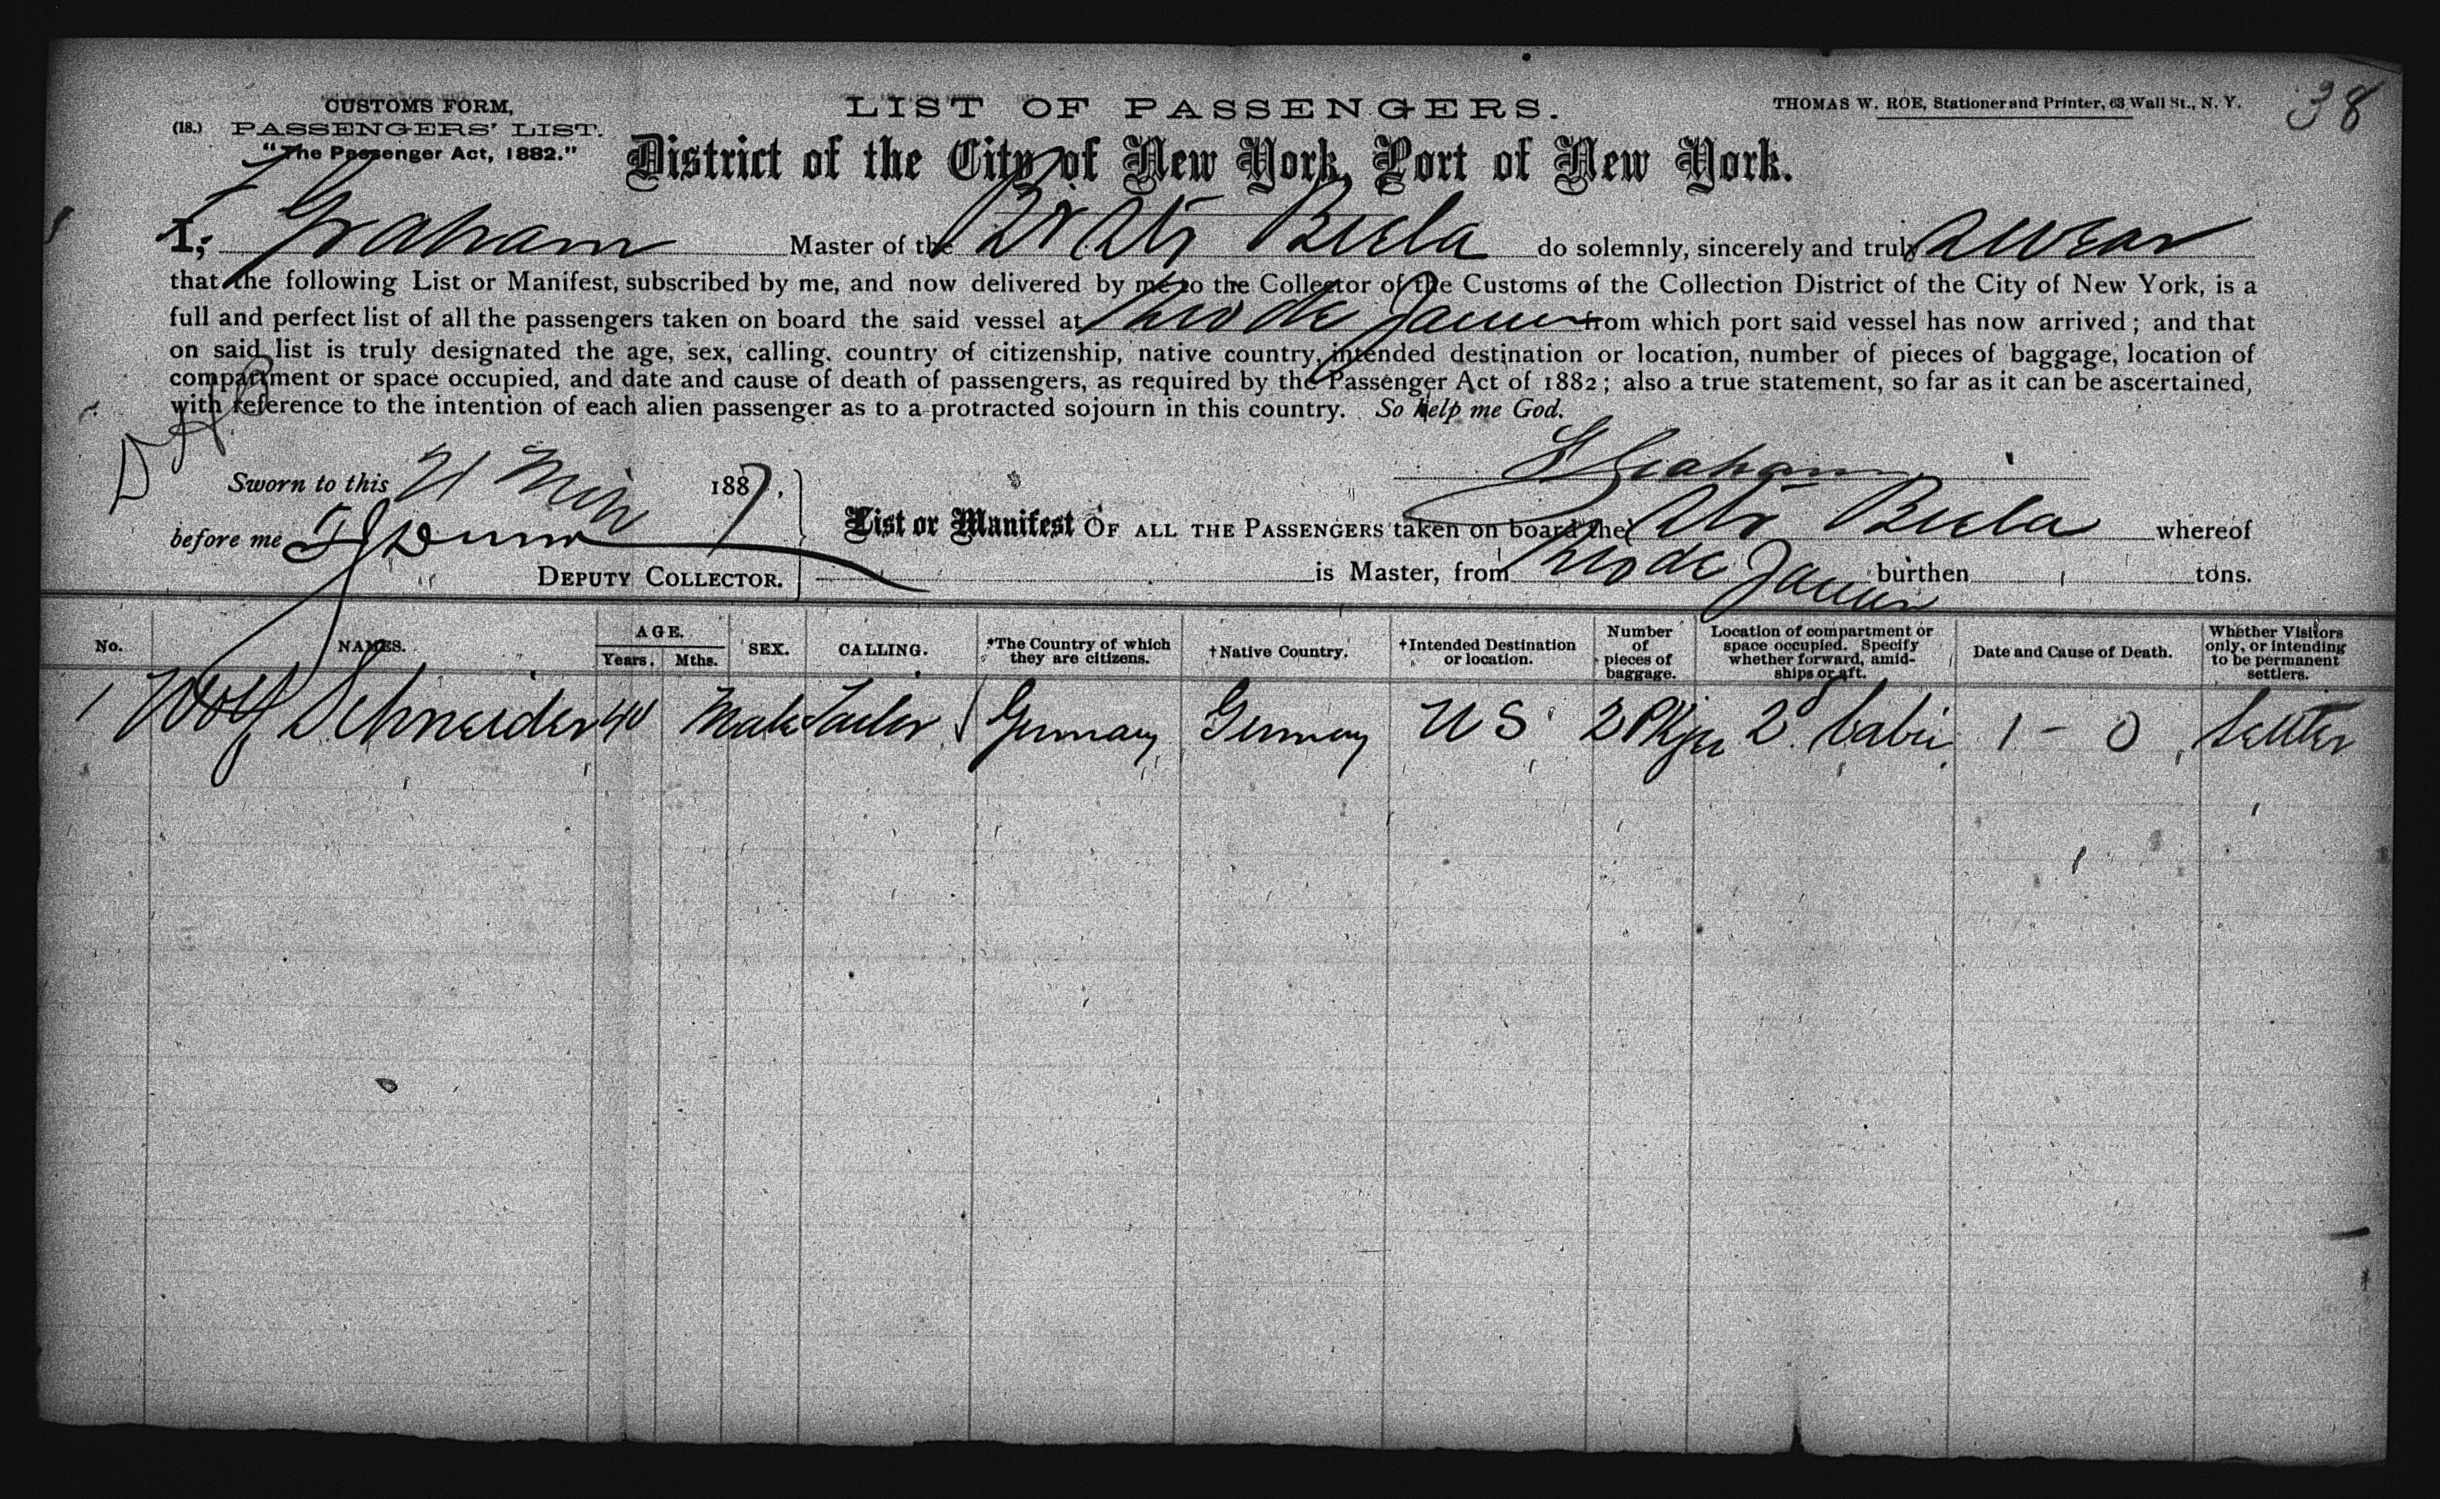 CUSTOMS FORM,
(18.) PASSENGERS' LIST.
"The Passenger Act, 1882."
LIST OF PASSENGERS.
THOMAS W. ROE, Stationer and Printer, 63 Wall St., N. Y.
38
District of the City of New York, Port of New York.
I, Graham Master of the Br Str Biela do solemnly, sincerely and truly swear
that the following List or Manifest, subscribed by me, and now delivered by me to the Collector of the Customs of the Collection District of the City of New York, is a
full and perfect list of all the passengers taken on board the said vessel at Rio de Janeiro from which port said vessel has now arrived; and that
on said list is truly designated the age, sex, calling, country of citizenship, native country, intended destination or location, number of pieces of baggage, location of
compartment or space occupied, and date and cause of death of passengers, as required by the Passenger Act of 1882; also a true statement, so far as it can be ascertained,
with reference to the intention of each alien passenger as to a protracted sojourn in this country. So help me God.
Graham
Sworn to this 21 1887.
before me Dunn
DEPUTY COLLECTOR.
List or Manifest OF ALL THE PASSENGERS taken on board the Str Biela whereof
is Master, from Rio de Janeiro burthen tons.
No. NAMES. AGE. Years. Mths. SEX. CALLING. *The Country of which they are citizens. †Native Country. †Intended Destination or location. Number of pieces of baggage. Location of compartment or space occupied. Specify whether forward, amidships or aft. Date and Cause of Death. Whether Visitors only, or intending to be permanent settlers.
1 Wolf Schneider 40 Male Tailor Germany Germany U S 2 Pkgs 2d Cabin 1 - 0 Settler